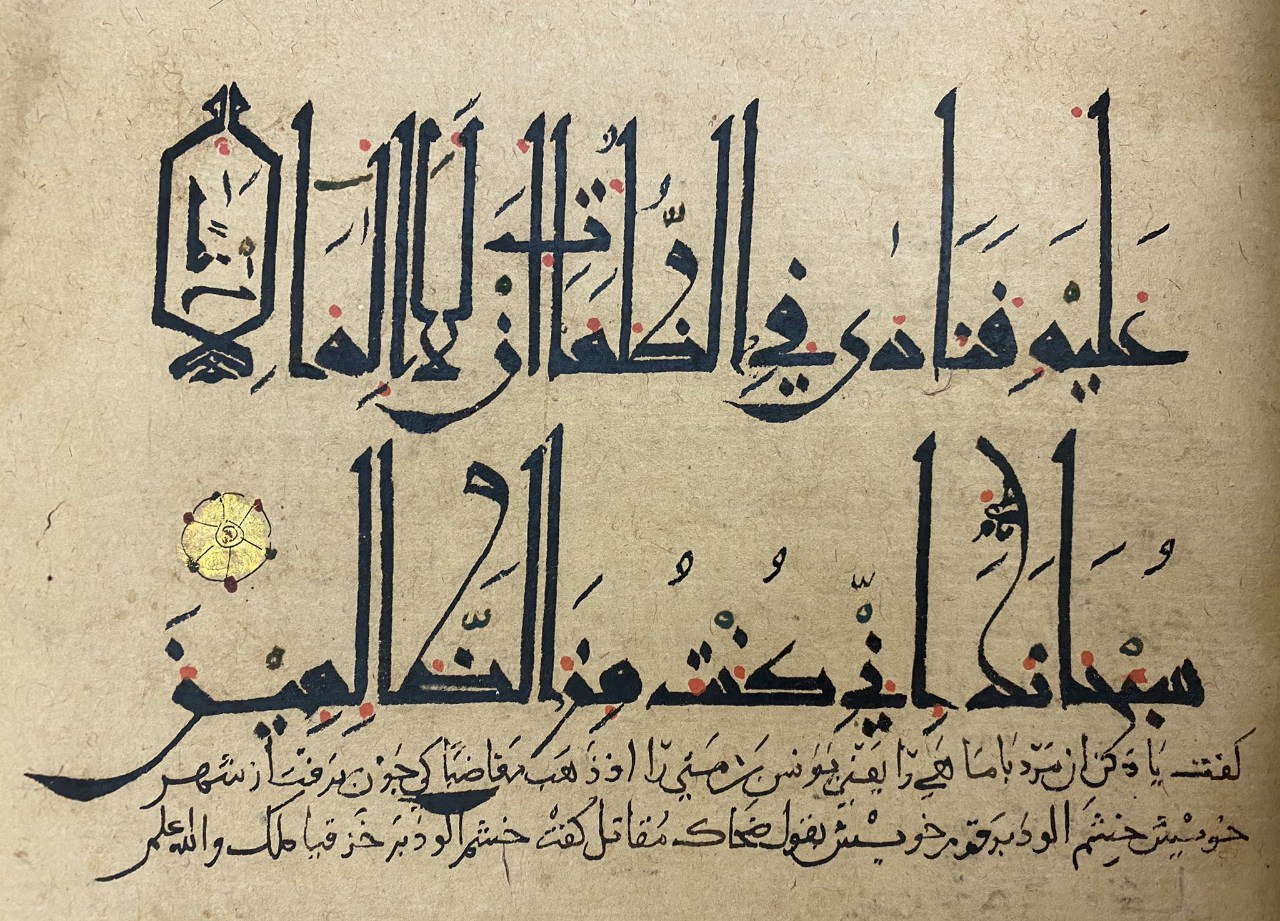 عَلَيْهِ فَنَادَى فِي الظُّلُمَاتِ أَنْ لَا إِلَهَ إِلَّا أَنْتَ
سُبْحَانَكَ إِنِّي كُنْتُ مِنَ الظَّالِمِينَ
كفت ياد كن ان مرد با ماهي را يعني يونس بن متي را اذ ذهب مغاضبا كي چون برفت از شهر
خويش خشم الود بر قوم خويش بقول ضحاك مقاتل كفت خشم الود بر حزقيا ملك والله اعلم